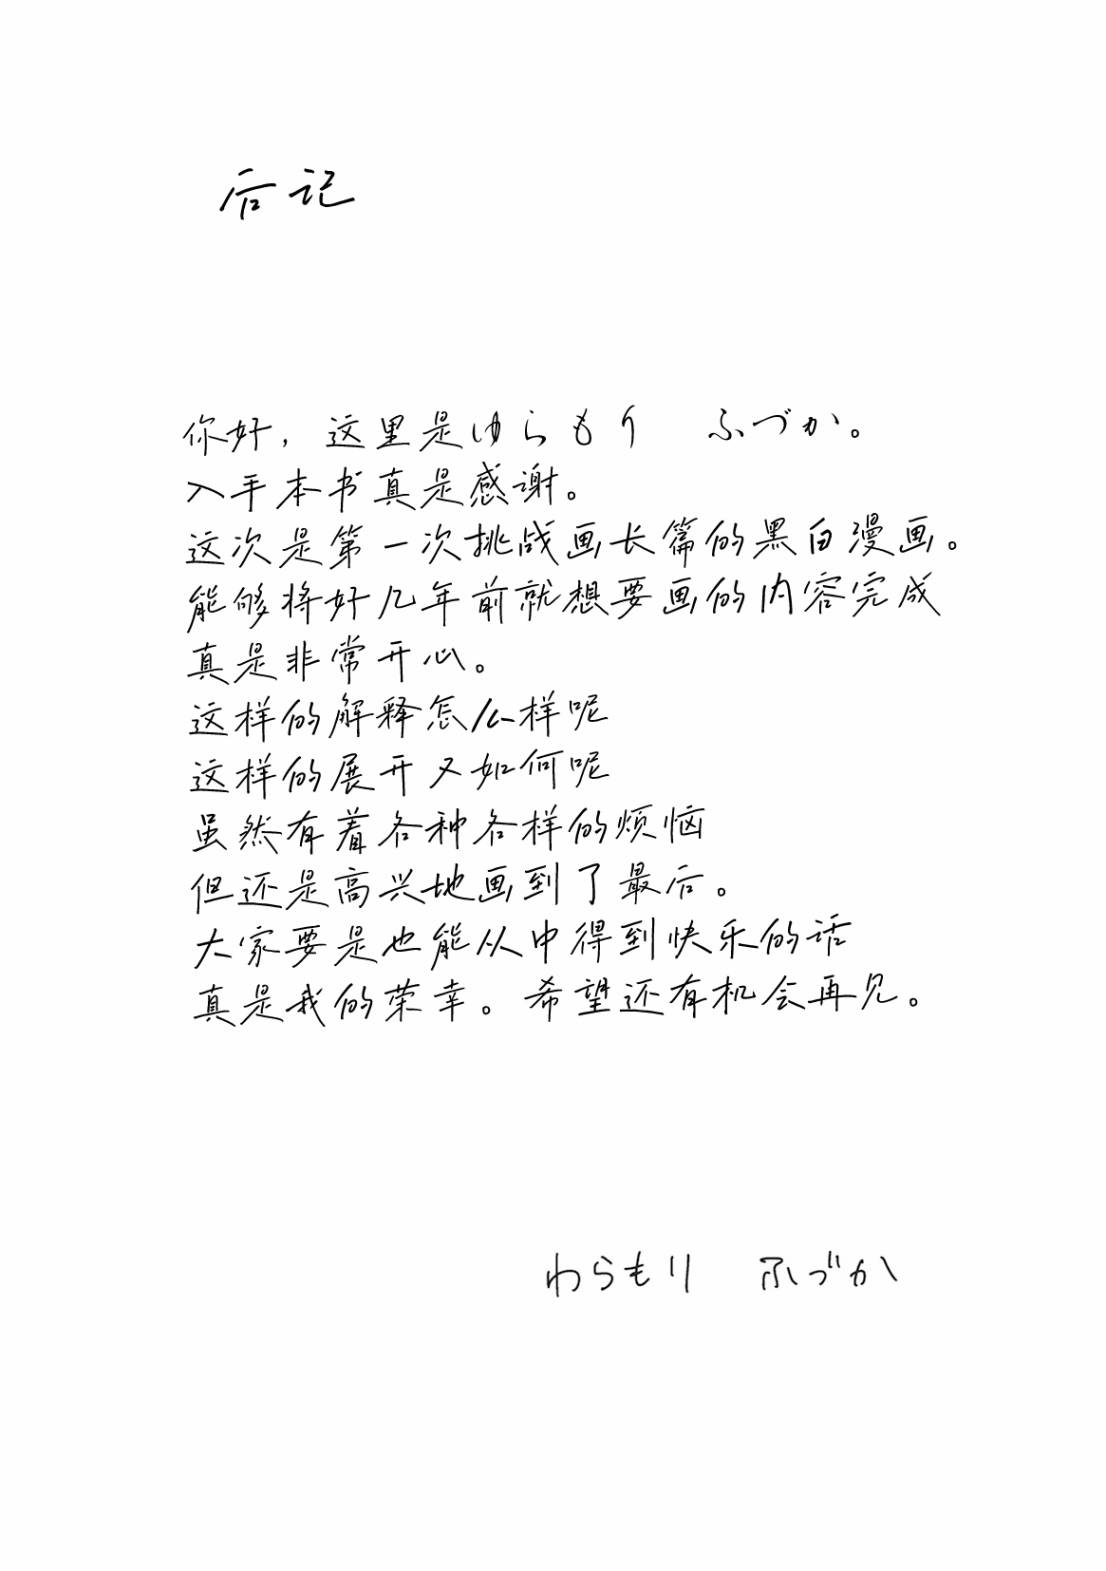 后记
你好，这里是ゆらもり　ふづか。
入手本书真是感谢。
这次是第一次挑战画长篇的黑白漫画。
能够将好几年前就想要画的内容完成
真是非常开心。
这样的解释怎么样呢
这样的展开又如何呢
虽然有着各种各样的烦恼
但还是高兴地画到了最后。
大家要是也能从中得到快乐的话
真是我的荣幸。希望还有机会再见。
わらもり　ふづか